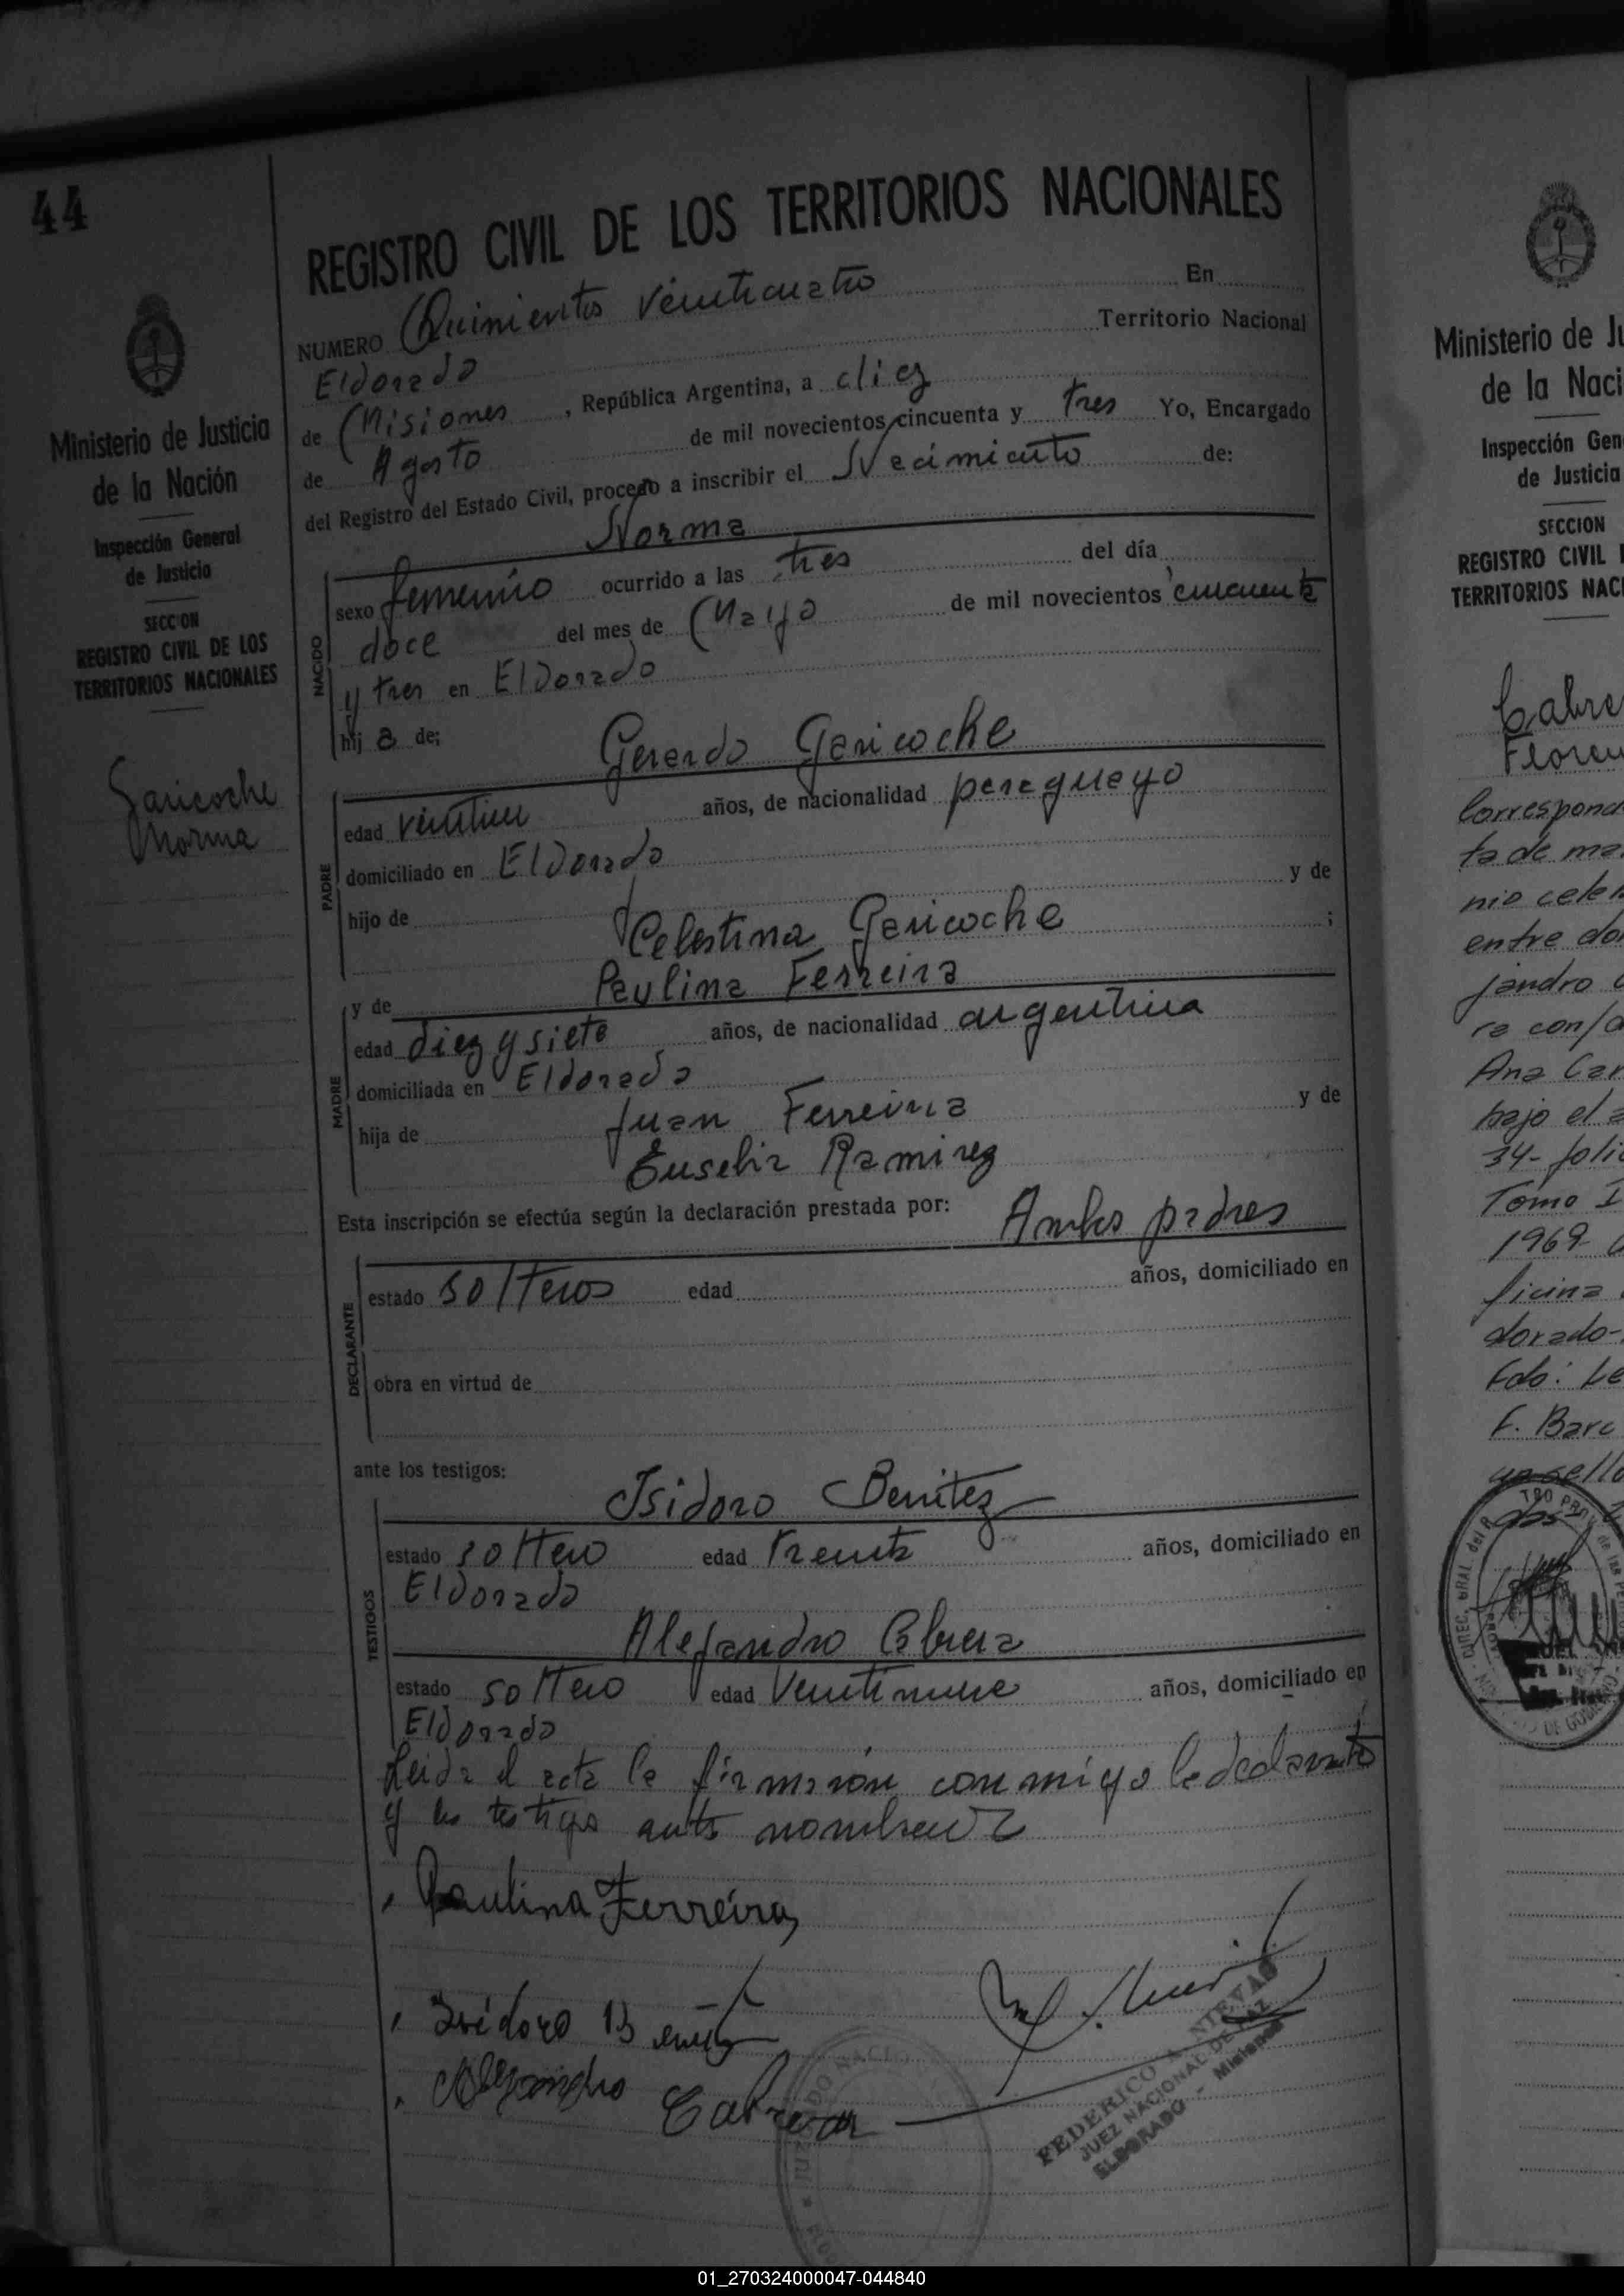 44
Ministerio de Justicia
de la Nación
Inspección General
de Justicia
SECCION
REGISTRO CIVIL DE LOS
TERRITORIOS NACIONALES
Garicoche
Norma
REGISTRO CIVIL DE LOS TERRITORIOS NACIONALES
NUMERO Quinientos veinticuatro En
Eldorado Territorio Nacional
de Misiones, República Argentina, a diez
de Agosto de mil novecientos cincuenta y tres Yo, Encargado
del Registro del Estado Civil, procedo a inscribir el Nacimiento de:
Norma
NACIDO
sexo femenino ocurrido a las tres del día
doce del mes de Mayo de mil novecientos cincuenta
y tres en Eldorado
hij a de;
Gerardo Garicoche
PADRE
edad años, de nacionalidad paraguayo
domiciliado en Eldorado
hijo de y de
Celestina Garicoche ;
y de Paulina Ferreira
MADRE
edad diez y siete años, de nacionalidad argentina
domiciliada en Eldorado
hija de Juan Ferreira y de
Eusebia Ramirez
Esta inscripción se efectúa según la declaración prestada por: Ambos padres
DECLARANTE
estado solteros edad años, domiciliado en
obra en virtud de
ante los testigos:
Isidoro Benitez
TESTIGOS
estado soltero edad treinta años, domiciliado en
Eldorado
Alejandro Cabrera
estado soltero edad años, domiciliado en
Eldorado
Leida el acta la firmaron conmigo
y los testigos
Paulina Ferreira
Isidoro Benitez
Alejandro Cabrera
FEDERICO A. NIEVAS
JUEZ NACIONAL DE PAZ
ELDORADO - Misiones
Ministerio de Ju
de la Naci
Inspección Gen
de Justicia
SECCION
REGISTRO CIVIL
TERRITORIOS NACI
Cabre
Floren
Correspond
ta de ma
nio celeb
entre do
jandro
ra con
Ana Car
bajo el a
34- foli
Tomo I
1969
ficina
dorado-
Fdo: Le
F. Barc
un sello
01_270324000047-044840